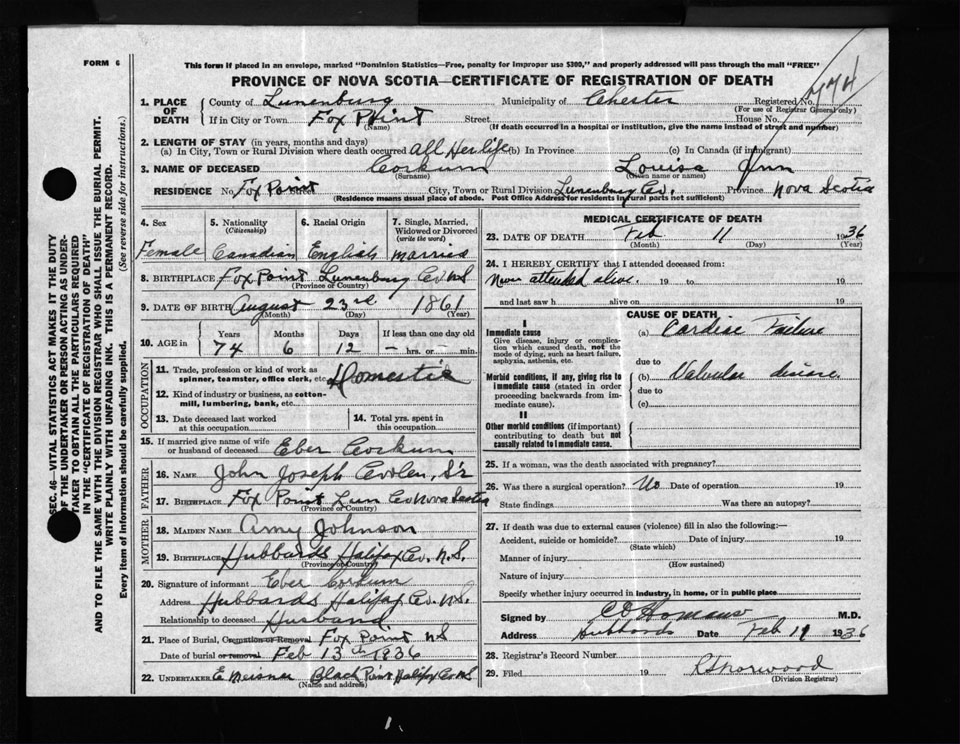 FORM 6
This form if placed in an envelope, marked "Dominion Statistics—Free, penalty for improper use $300," and properly addressed will pass through the mail "FREE"
PROVINCE OF NOVA SCOTIA—CERTIFICATE OF REGISTRATION OF DEATH
SEC. 46—VITAL STATISTICS ACT MAKES IT THE DUTY
OF THE UNDERTAKER OR PERSON ACTING AS UNDER-
TAKER TO OBTAIN ALL THE PARTICULARS REQUIRED
IN THE "CERTIFICATE OF REGISTRATION OF DEATH"
AND TO FILE THE SAME WITH THE DIVISION REGISTRAR WHO SHALL ISSUE THE BURIAL PERMIT.
WRITE PLAINLY WITH UNFADING INK. THIS IS A PERMANENT RECORD.
Every item of information should be carefully supplied. (See reverse side for instructions.)
1. PLACE OF DEATH County of Lunenburg Municipality of Chester Registered No. 774
(For use of Registrar General only)
If in City or Town Fox Point Street House No.
(Name) (If death occurred in a hospital or institution, give the name instead of street and number)
2. LENGTH OF STAY (in years, months and days)
(a) In City, Town or Rural Division where death occurred All Her life (b) In Province (c) In Canada (if immigrant)
3. NAME OF DECEASED Corkum Louisa Ann
(Surname) (Given name or names)
RESIDENCE No. Fox Point Street City, Town or Rural Division Lunenburg Co. Province Nova Scotia
(Residence means usual place of abode. Post Office Address for residents in rural parts not sufficient)
4. Sex 5. Nationality (Citizenship) 6. Racial Origin 7. Single, Married, Widowed or Divorced (write the word)
Female Canadian English married
8. BIRTHPLACE Fox Point Lunenburg Co NS
(Province or Country)
9. DATE OF BIRTH August 23rd 1861
(Month) (Day) (Year)
10. AGE in Years Months Days If less than one day old
74 6 12 — hrs. or — min.
OCCUPATION
11. Trade, profession or kind of work as
spinner, teamster, office clerk, etc. Domestic
12. Kind of industry or business, as cotton-
mill, lumbering, bank, etc.
13. Date deceased last worked at this occupation 14. Total yrs. spent in this occupation
15. If married give name of wife
or husband of deceased Eber Corkum
FATHER
16. NAME John Joseph Coolen, Sr
17. BIRTHPLACE Fox Point Lun Co Nova Scotia
(Province or Country)
MOTHER
18. MAIDEN NAME Amy Johnson
19. BIRTHPLACE Hubbards Halifax Co. N.S.
(Province or Country)
20. Signature of informant Eber Corkum
Address Hubbards Halifax Co. N.S.
Relationship to deceased Husband
21. Place of Burial, Cremation or Removal Fox Point NS
Date of burial or removal Feb 13th 1936
22. UNDERTAKER E Meisner Black Point Halifax Co NS
(Name and address)
MEDICAL CERTIFICATE OF DEATH
23. DATE OF DEATH Feb 11 1936
(Month) (Day) (Year)
24. I HEREBY CERTIFY that I attended deceased from:
Never attended alive. 19 to 19
and last saw h alive on 19
CAUSE OF DEATH
I
Immediate cause (a) Cardiac Failure
Give disease, injury or complica-
tion which caused death, not the
mode of dying, such as heart failure,
asphyxia, asthenia, etc.
due to
Morbid conditions, if any, giving rise to
immediate cause (stated in order
proceeding backwards from im-
mediate cause).
(b) Valvular disease
due to
(c)
II
Other morbid conditions (if important)
contributing to death but not
causally related to immediate cause.
25. If a woman, was the death associated with pregnancy?
26. Was there a surgical operation? No Date of operation 19
State findings Was there an autopsy?
27. If death was due to external causes (violence) fill in also the following:—
Accident, suicide or homicide? Date of injury 19
(State which)
Manner of injury
(How sustained)
Nature of injury
Specify whether injury occurred in industry, in home, or in public place
Signed by M.D.
Address Hubbards Date Feb 11 1936
28. Registrar's Record Number
29. Filed 19 Norwood
(Division Registrar)